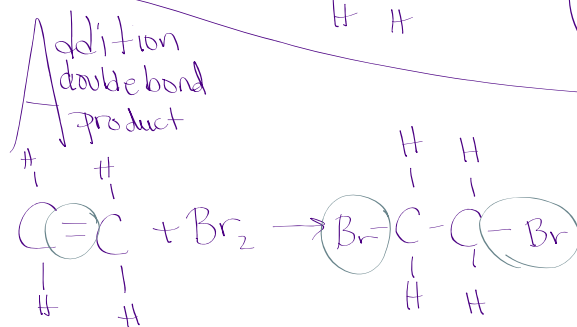 H H
Addition
double bond
product
H H
C = C + Br₂ → Br - C - C - Br
H H
H H
H H